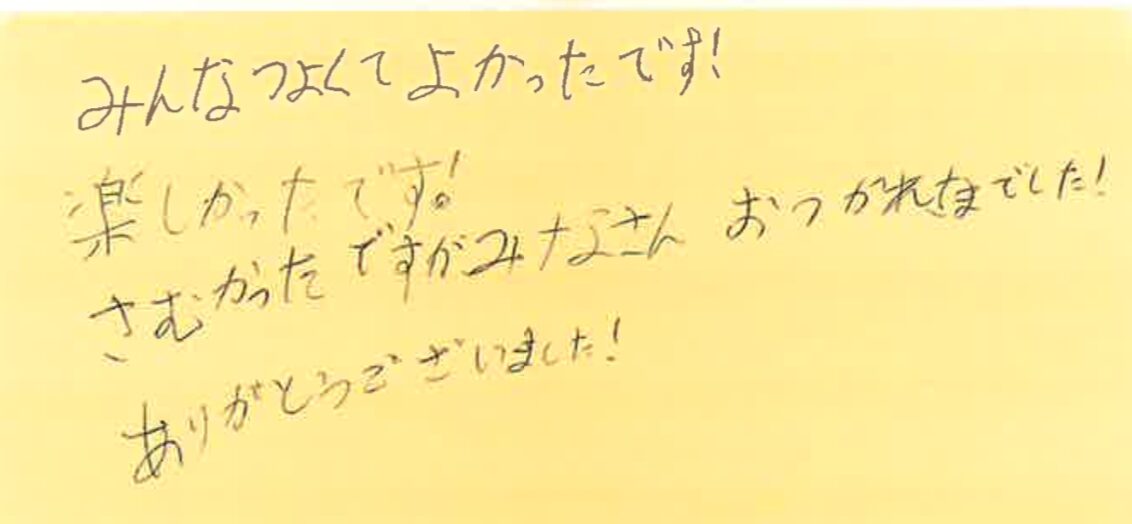 みんなつよくてよかったです!
楽しかったです!
さむかったですがみなさん おつかれなでした!
ありがとうございました!